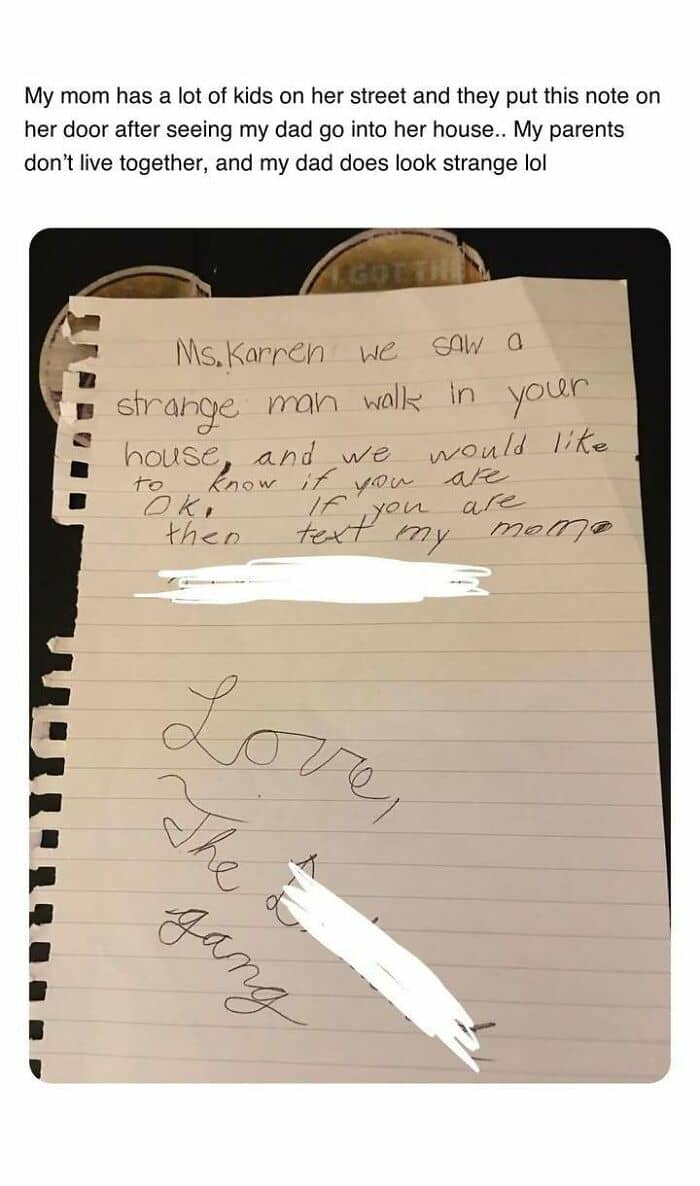 My mom has a lot of kids on her street and they put this note on
her door after seeing my dad go into her house.. My parents
don't live together, and my dad does look strange lol
I GOT TH
Ms. Karren we saw a
strange man walk in your
house, and we would like
to know if you are
OK. If you are
then text my mom
Love,
The
gang